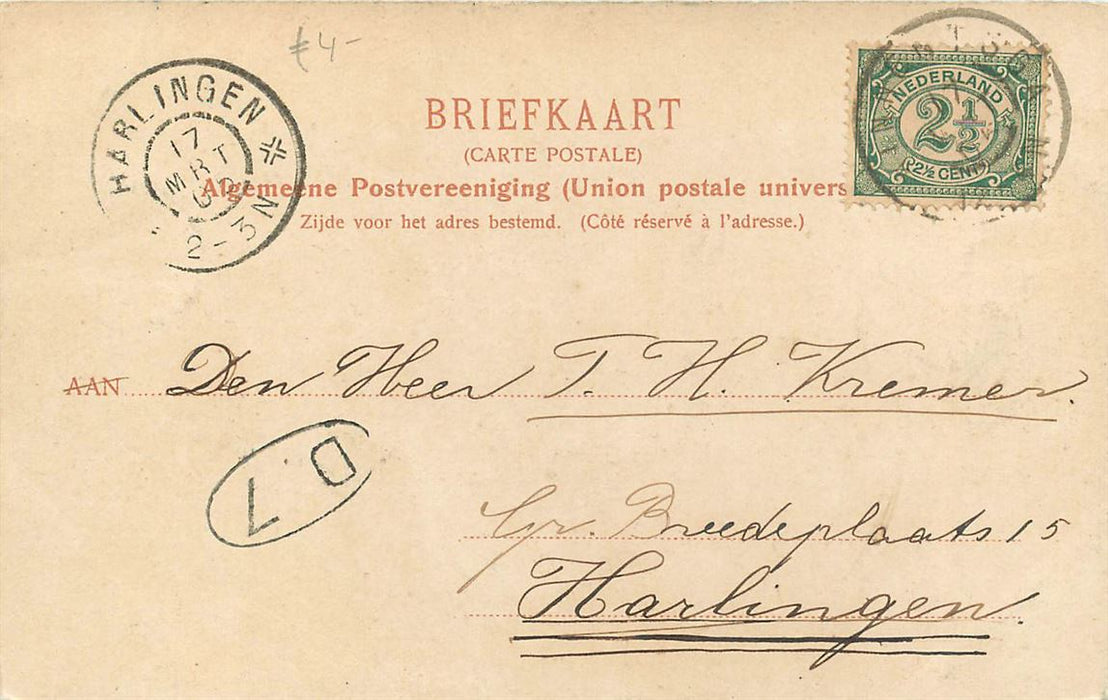 £4-
HARLINGEN
17
MRT
2-3N
BRIEFKAART
(CARTE POSTALE)
Algemeene Postvereeniging (Union postale univers
Zijde voor het adres bestemd. (Côté réservé à l'adresse.)
NEDERLAND
2½
(2½ CENT)
AAN Den Heer T. H. Kremer.
D 7
Gr. Breedeplaats 15
Harlingen.